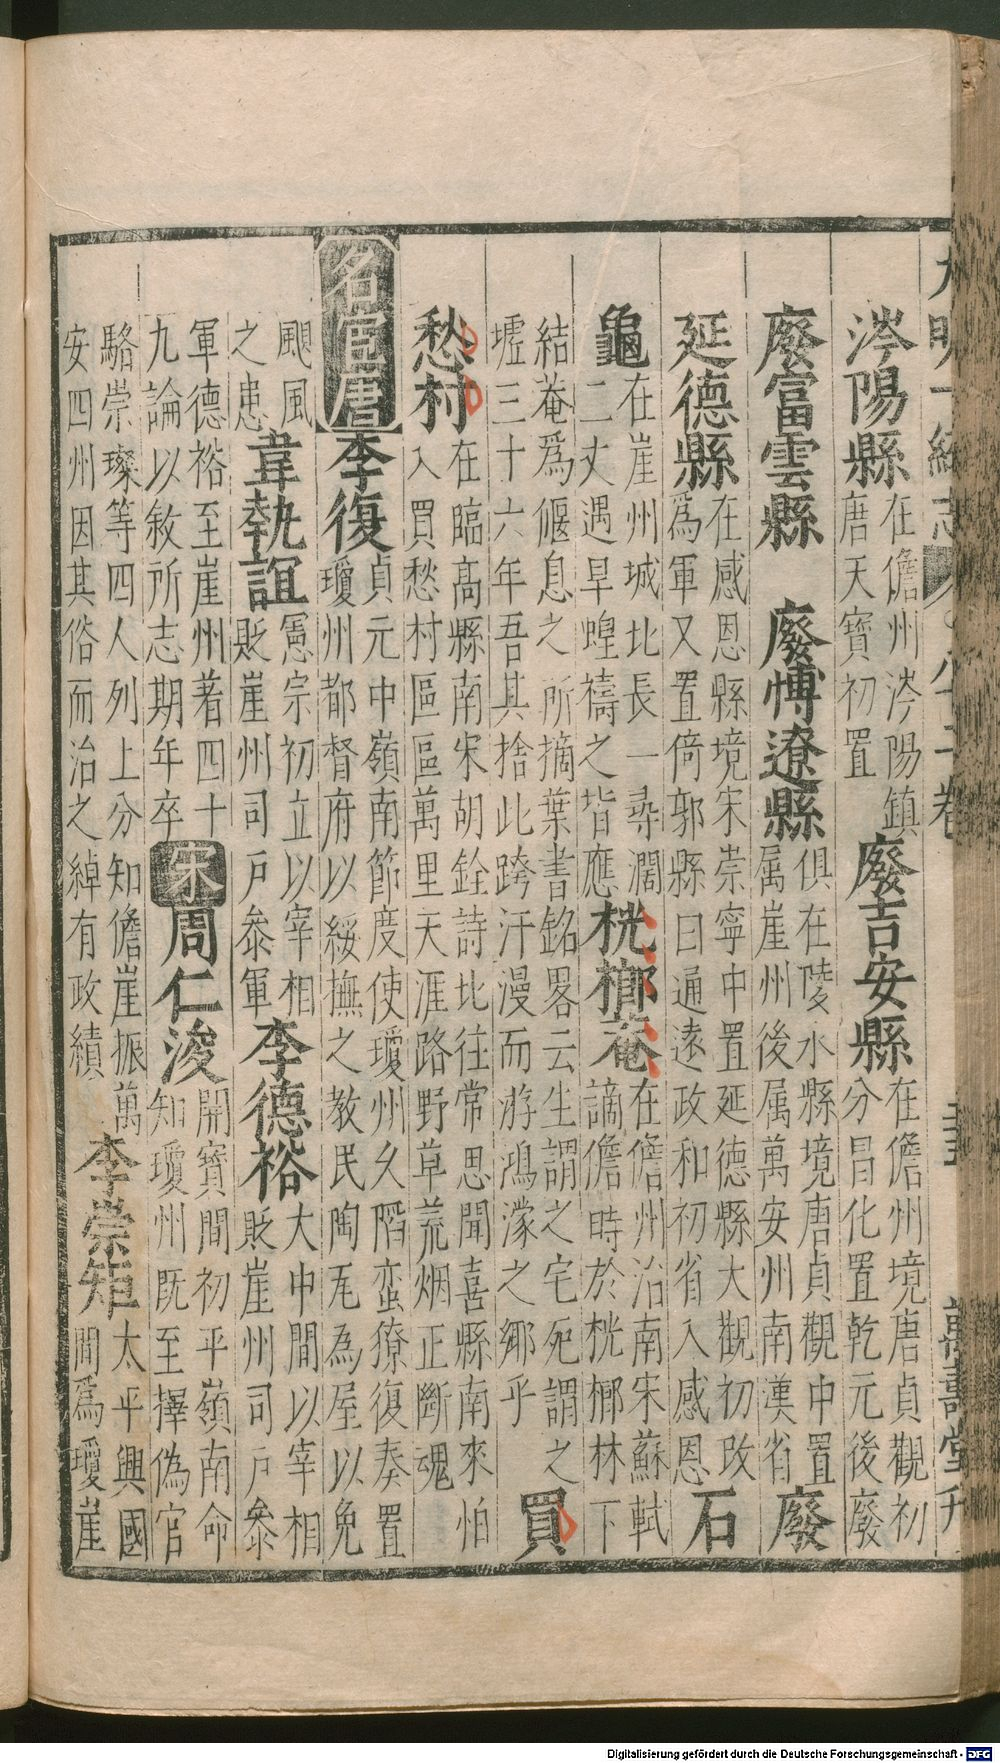 大明一統志 八十二卷 萬壽堂刊
涔陽縣在儋州涔陽鎮唐天寶初置廢吉安縣在儋州境唐貞觀初分昌化置乾元後廢
廢富雲縣 廢愽遼縣俱在陵水縣境唐貞觀中置属崖州後属萬安州南漢省廢
延德縣在感恩縣境宋崇寧中置延德縣大觀初改為軍又置倚郭縣曰通遠政和初省入感恩石
龜在崖州城北長一尋濶二丈遇旱蝗禱之皆應桄榔菴在儋州治南宋蘇軾謫儋時於桄榔林下
結菴爲偃息之所摘葉書銘畧云生謂之宅死謂之墟三十六年吾其捨此跨汗漫而游鴻濛之鄉乎買
愁村在臨高縣南宋胡銓詩北往常思聞喜縣南來怕入買愁村區區萬里天涯路野草荒烟正斷魂
名宦唐李復貞元中嶺南節度使瓊州久䧟蛮獠復奏置瓊州都督府以綏撫之教民陶瓦為屋以免
颶風之患韋執誼憲宗初立以宰相貶崖州司戶叅軍李德裕大中間以宰相貶崖州司戶叅
軍德裕至崖州著四十九論以敘所志期年卒宋周仁浚開寶間初平嶺南命知瓊州既至擇偽官
駱崇璨等四人列上分知儋崖振萬安四州因其俗而治之綽有政績李崇矩太平興國間爲瓊崖
Digitalisierung gefördert durch die Deutsche Forschungsgemeinschaft - DFG